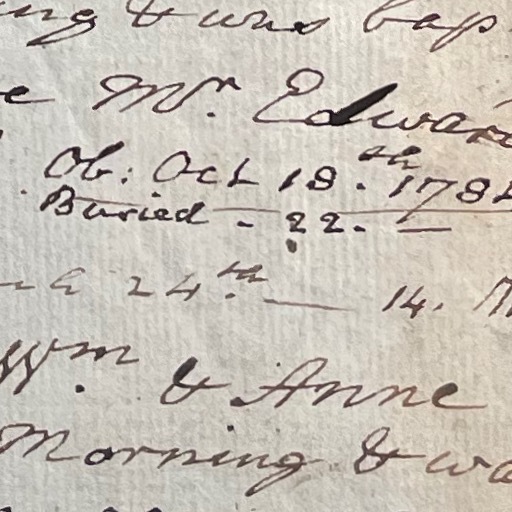 ng & was bap
e Mr. Edward
Ob: Oct 18.th 178
Buried - 22. —
24.th — 14.
Wm. & Anne
Morning & wa